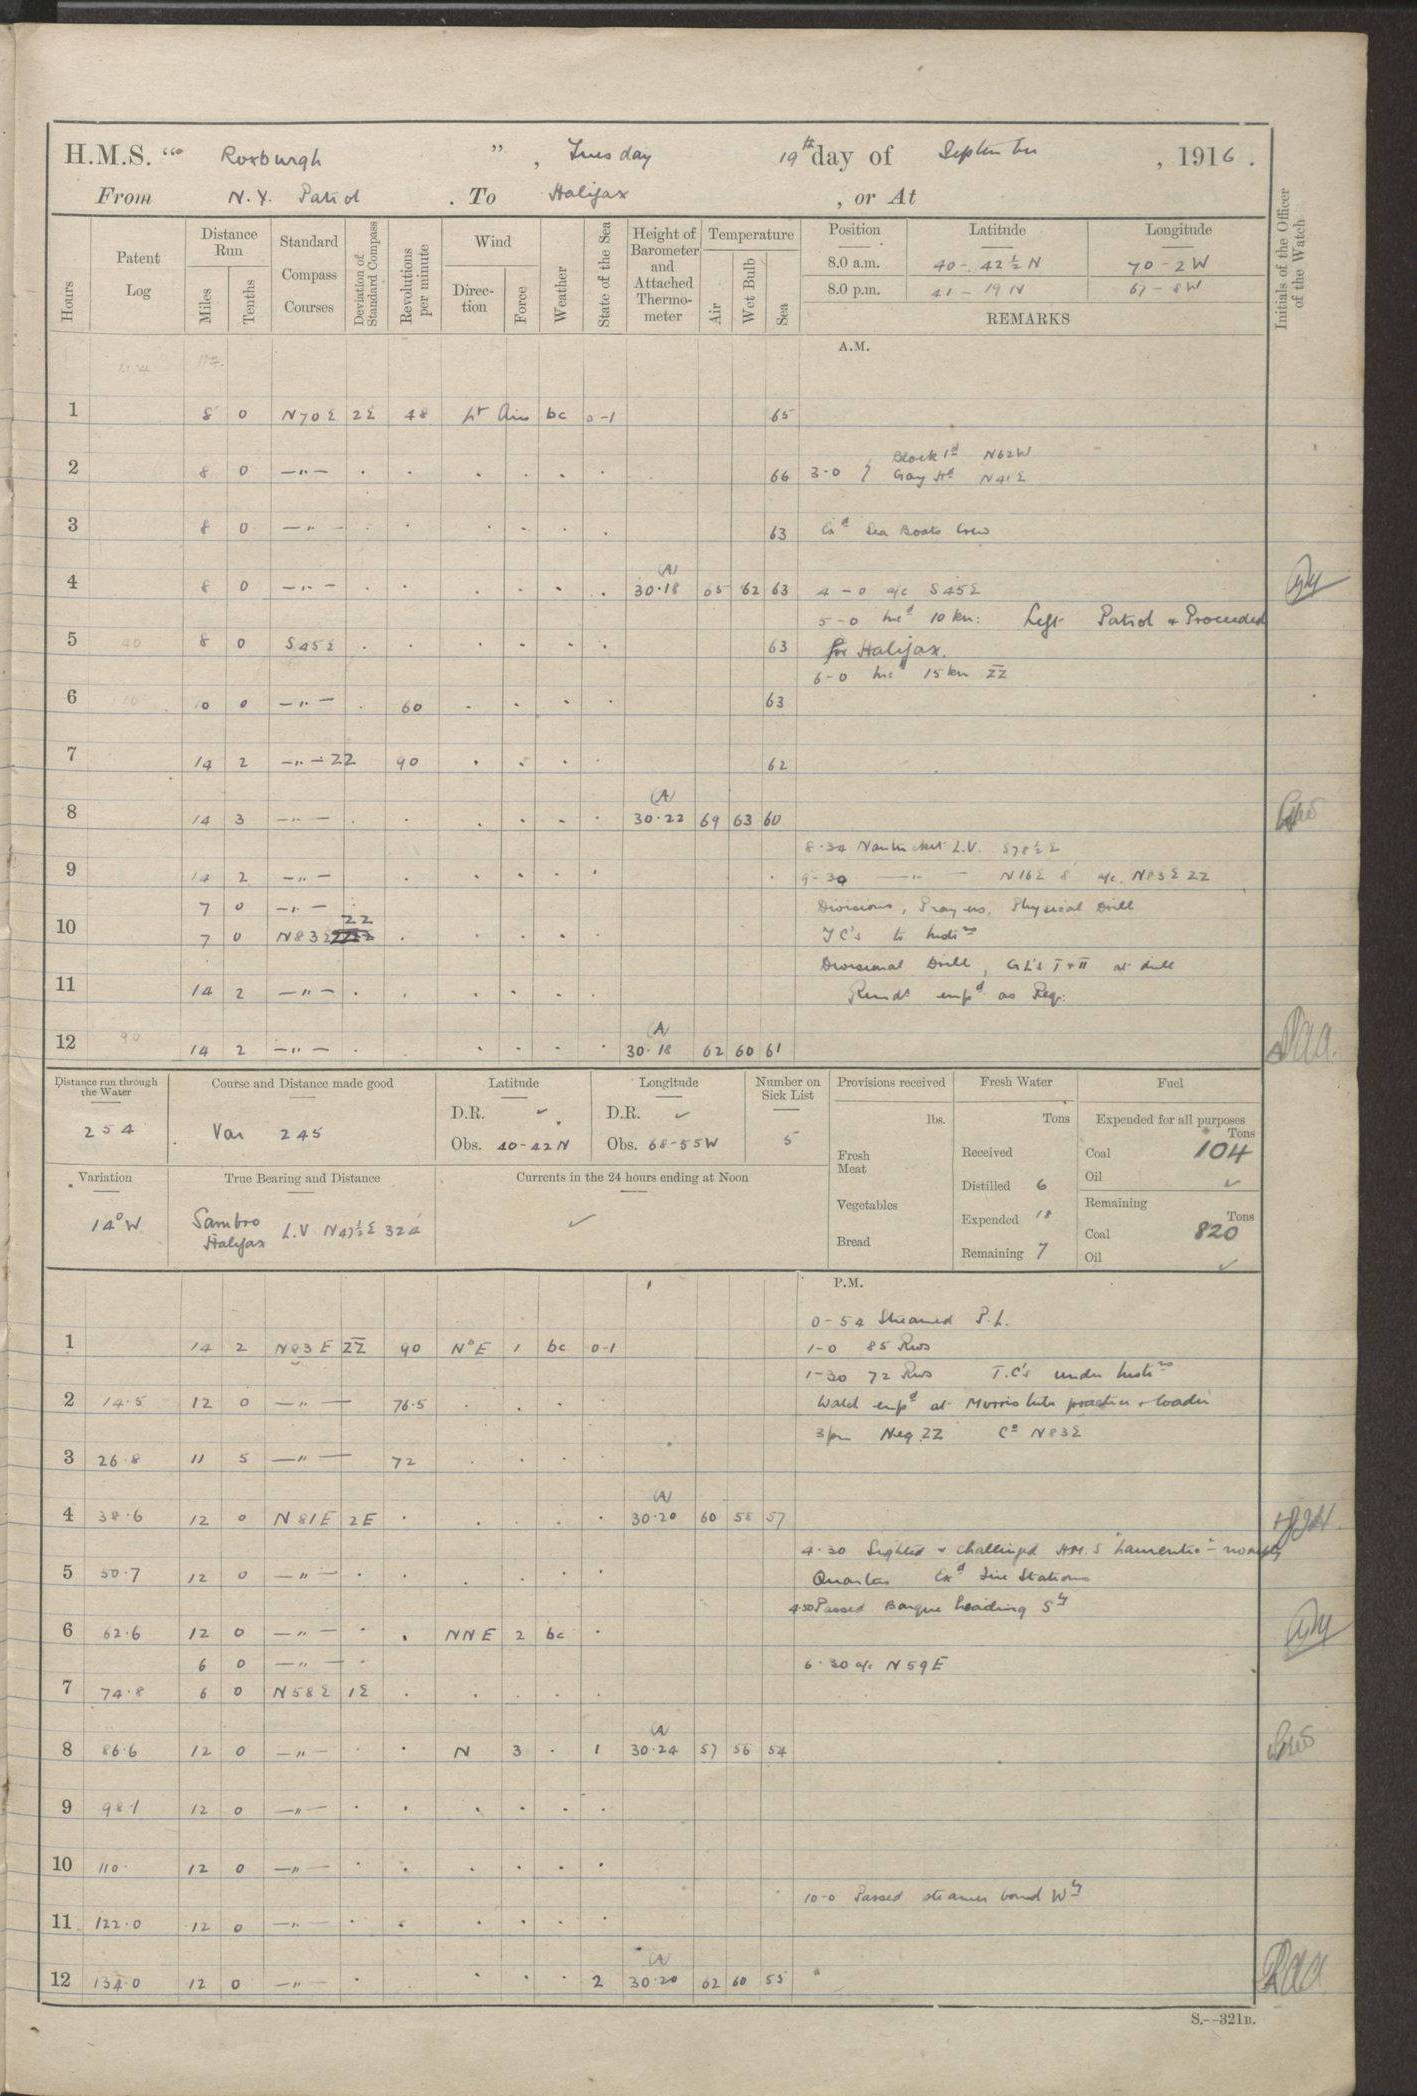 H.M.S. " Roxburgh ", Tuesday 19th day of September, 1916.
From N.Y. Patrol. To Halifax, or At
Hours
Patent Log
Distance Run
Miles
Tenths
Standard Compass Courses
Deviation of Standard Compass
Revolutions per minute
Wind
Direction
Force
Weather
State of the Sea
Height of Barometer and Attached Thermometer
Temperature
Air
Wet Bulb
Sea
Position Latitude Longitude
8.0 a.m. 40-42½ N 70-2 W
8.0 p.m. 41-19 N 67-8 W
REMARKS
Initials of the Officer of the Watch
A.M.
1 8 0 N70E 2E 48 Lt Airs bc 0-1 65
Block Id N62W
2 8 0 —"— . . . . . . 66 3-0 } Gay Hd N41E
3 8 0 —"— . . . . . . 63 Exd Sea Boats Crew
(A)
4 8 0 —"— . . . . . . 30.18 65 62 63 4-0 a/c S45E
5-0 Incd 10 kn: Left Patrol & Proceeded
5 8 0 S45E . . . . . . 63 for Halifax.
6-0 Incd 15 kn ZZ
6 10 0 —"— . 60 . . . . 63
7 14 2 —"— ZZ 90 . . . . 62
(A)
8 14 3 —"— . . . . . . 30.22 69 63 60
8.34 Nantucket L.V. S78½E
9 14 2 —"— . . . . . . 9-30 —"— N16E 8' a/c N83E ZZ
7 0 —"— Divisions, Prayers, Physical Drill
10 7 0 N83E ZZ . . . . . T.C's to Instns
Divisional Drill, GL's I & II at drill
11 14 2 —"— . . . . . . Remdr empd as Req:
(A)
12 90 14 2 —"— . . . . . . 30.18 62 60 61
Distance run through the Water
254
Course and Distance made good
Var 245
Latitude
D.R. ✓
Obs. 40-42N
Longitude
D.R. ✓
Obs. 68-55W
Number on Sick List
5
Provisions received
lbs.
Fresh Meat
Vegetables
Bread
Fresh Water
Tons
Received
Distilled 6
Expended 18
Remaining 7
Fuel
Expended for all purposes
Tons
Coal 104
Oil ✓
Remaining
Tons
Coal 820
Oil ✓
Variation
14°W
True Bearing and Distance
Sambro Halifax L.V N47½E 324'
Currents in the 24 hours ending at Noon
✓
P.M.
0-54 Streamed P.L.
1 14 2 N83E ZZ 90 N°E 1 bc 0-1 1-0 85 Revs
1-30 72 Revs T.C's under Instns
2 14.5 12 0 —"— 76.5 . . . . Watch empd at Morris tube practice & loader
3pm Neg ZZ Co N83E
3 26.8 11 5 —"— 72 . . . .
(A)
4 38.6 12 0 N81E 2E . . . . . 30.20 60 58 57
4.30 Sighted & challenged H.M.S "Laurentic"
5 50.7 12 0 —"— . . . . . . Quarters Exd Fire Stations
4.50 Passed Barque heading Sly
6 62.6 12 0 —"— . . NNE 2 bc .
6 0 —"— . 6.30 a/c N59E
7 74.8 6 0 N58E 1E . . . . .
(A)
8 86.6 12 0 —"— . . N 3 . 1 30.24 57 56 54
9 98.1 12 0 —"— . . . . . .
10 110. 12 0 —"— . . . . . .
10-0 Passed steamer bound Wly
11 122.0 12 0 —"— . . . . . .
(A)
12 134.0 12 0 —"— . . . . 2 30.20 62 60 55
S.—321B.